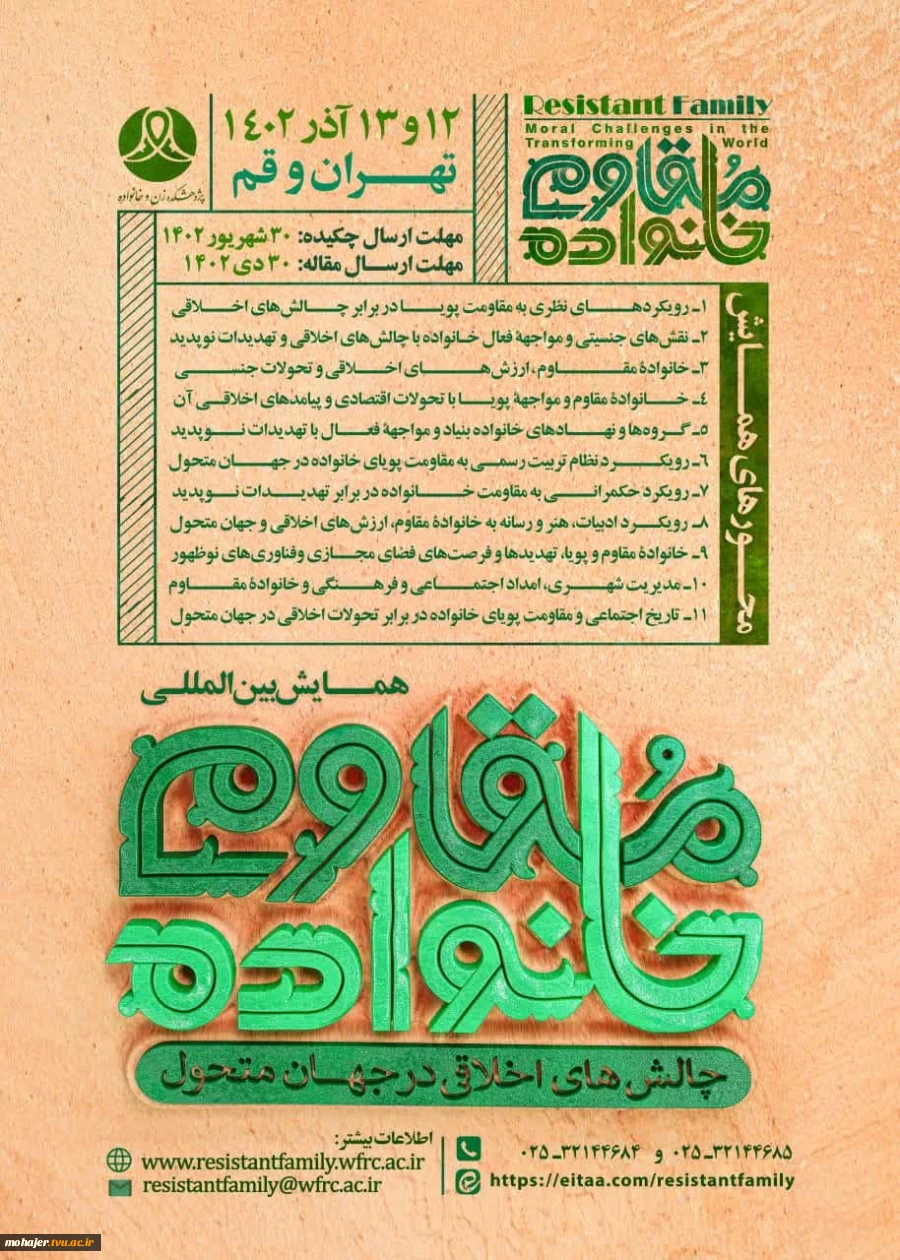 Resistant Family
Moral Challenges in the
Transforming World
خانواده مقاوم
۱۲ و ۱۳ آذر ۱۴۰۲
تهران و قم
پژوهشکده زن و خانواده
مهلت ارسال چکیده: ۳۰ شهریور ۱۴۰۲
مهلت ارسال مقاله: ۳۰ دی ۱۴۰۲
محورهای همایش
۱ـ رویکردهای نظری به مقاومت پویا در برابر چالش‌های اخلاقی
۲ـ نقش‌های جنسیتی و مواجههٔ فعال خانواده با چالش‌های اخلاقی و تهدیدات نوپدید
۳ـ خانوادهٔ مقاوم، ارزش‌های اخلاقی و تحولات جنسی
۴ـ خانوادهٔ مقاوم و مواجههٔ پویا با تحولات اقتصادی و پیامدهای اخلاقی آن
۵ـ گروه‌ها و نهادهای خانواده بنیاد و مواجههٔ فعال با تهدیدات نوپدید
۶ـ رویکرد نظام تربیت رسمی به مقاومت پویای خانواده در جهان متحول
۷ـ رویکرد حکمرانی به مقاومت خانواده در برابر تهدیدات نوپدید
۸ـ رویکرد ادبیات، هنر و رسانه به خانوادهٔ مقاوم، ارزش‌های اخلاقی و جهان متحول
۹ـ خانوادهٔ مقاوم و پویا، تهدیدها و فرصت‌های فضای مجازی وفناوری‌های نوظهور
۱۰ـ مدیریت شهری، امداد اجتماعی و فرهنگی و خانوادهٔ مقاوم
۱۱ـ تاریخ اجتماعی و مقاومت پویای خانواده در برابر تحولات اخلاقی در جهان متحول
همایش بین‌المللی
خانواده مُقاوم
چالش های اخلاقی در جهان متحول
اطلاعات بیشتر:
www.resistantfamily.wfrc.ac.ir
resistantfamily@wfrc.ac.ir
۰۲۵-۳۲۱۴۴۶۸۵ و ۰۲۵-۳۲۱۴۴۶۸۴
https://eitaa.com/resistantfamily
mohajer.tvu.ac.ir